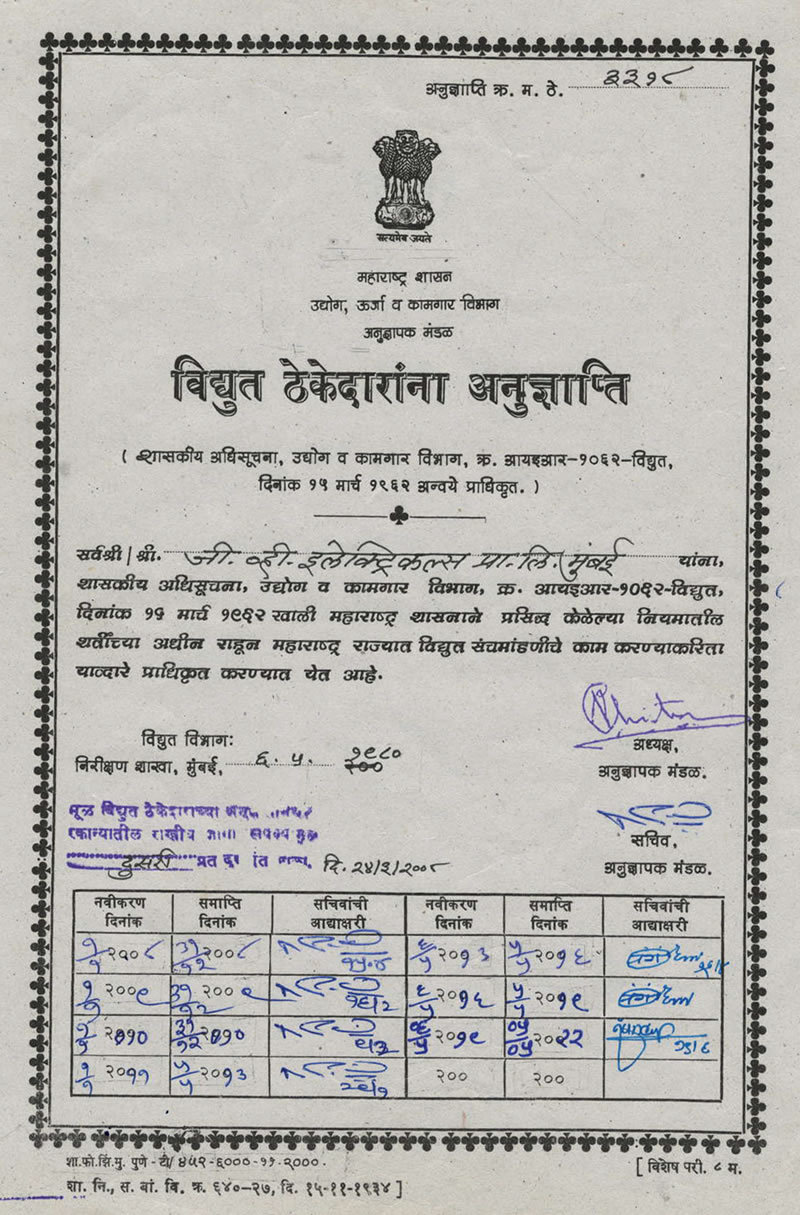 अनुज्ञाप्ति क्र. म. ठे. ३३१८
सत्यमेव जयते
महाराष्ट्र शासन
उद्योग, ऊर्जा व कामगार विभाग
अनुज्ञापक मंडळ
विद्युत ठेकेदारांना अनुज्ञाप्ति
( शासकीय अधिसूचना, उद्योग व कामगार विभाग, क्र. आयइआर-१०६२-विद्युत,
दिनांक १५ मार्च १९६२ अन्वये प्राधिकृत. )
सर्वश्री/श्री. जी. व्ही. इलेक्ट्रिकल्स प्रा. लि. मुंबई यांना,
शासकीय अधिसूचना, उद्योग व कामगार विभाग, क्र. आयइआर-१०६२-विद्युत,
दिनांक १५ मार्च १९६२ खाली महाराष्ट्र शासनाने प्रसिध्द केलेल्या नियमातील
शर्तीच्या अधीन राहून महाराष्ट्र राज्यात विद्युत संचमांडणीचे काम करण्याकरिता
याव्दारे प्राधिकृत करण्यात येत आहे.
विद्युत विभाग:
निरीक्षण शाखा, मुंबई, ६. ५. १९८०
अध्यक्ष,
अनुज्ञापक मंडळ.
सचिव,
अनुज्ञापक मंडळ.
मूळ विद्युत ठेकेदाराच्या
दुसरी प्रत दि. २४/३/२००८
नवीकरण दिनांक समाप्ति दिनांक सचिवांची आद्याक्षरी नवीकरण दिनांक समाप्ति दिनांक सचिवांची आद्याक्षरी
१/१ २००८ ३१/१२ २००८ ६/५ २०१३ ५/५ २०१६
१/१ २००९ ३१/१२ २००९ ६/५ २०१६ ५/५ २०१९
१/१ २०१० ३१/१२ २०१० ०६/५ २०१९ ०५/०५ २०२२
१/१ २०११ ५/५ २०१३ २०० २००
शा.फो.झिं.मु. पुणे - टी/ ४५२-६०००-११-२०००.
[ विशेष परी. ८ म.
शा. नि., स. बां. वि. क्र. ६४०-२७, दि. १५-११-१९३४ ]